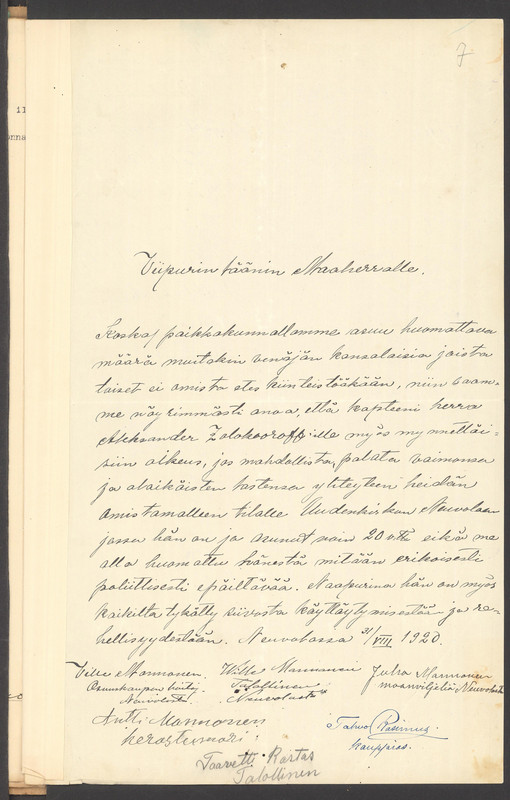 7
Viipurin läänin Maaherralle.
Koska paikkakunnallamme asuu huomattava
määrä muitakin venäjän kansalaisia joista
toiset ei omista etes kiinteistöäkään, niin saam-
me nöyrimmästi anoa, että kapteeni herra
Aleksander Zolokooroff:ille myös myönnettäi-
siin oikeus, jos mahdollista, palata vaimonsa
ja alaikäisten lastensa yhteyteen heidän
omistamalleen tilalle Uudenkirkon Neuvolaan
jossa hän on jo asunut noin 20 v. eikä me
olla huomattu hänestä mitään erikoisesti
poliittisesti epäiltävää. Naapurina hän on myös
kaikilta tykätty siivosta käyttäytymisestään ja re-
hellisyydestään. Neuvolassa 31/VIII 1920.
Ville Mannonen Wille Mannonen Juho Mannonen
Osuuskaupan hoitaj. Talollinen maanviljeliä Neuvolasta
Neuvolasta. Neuvolasta
Antti Mannonen
Tahvo Rasimus
kauppias.
Taavetti Rastas
Talollinen